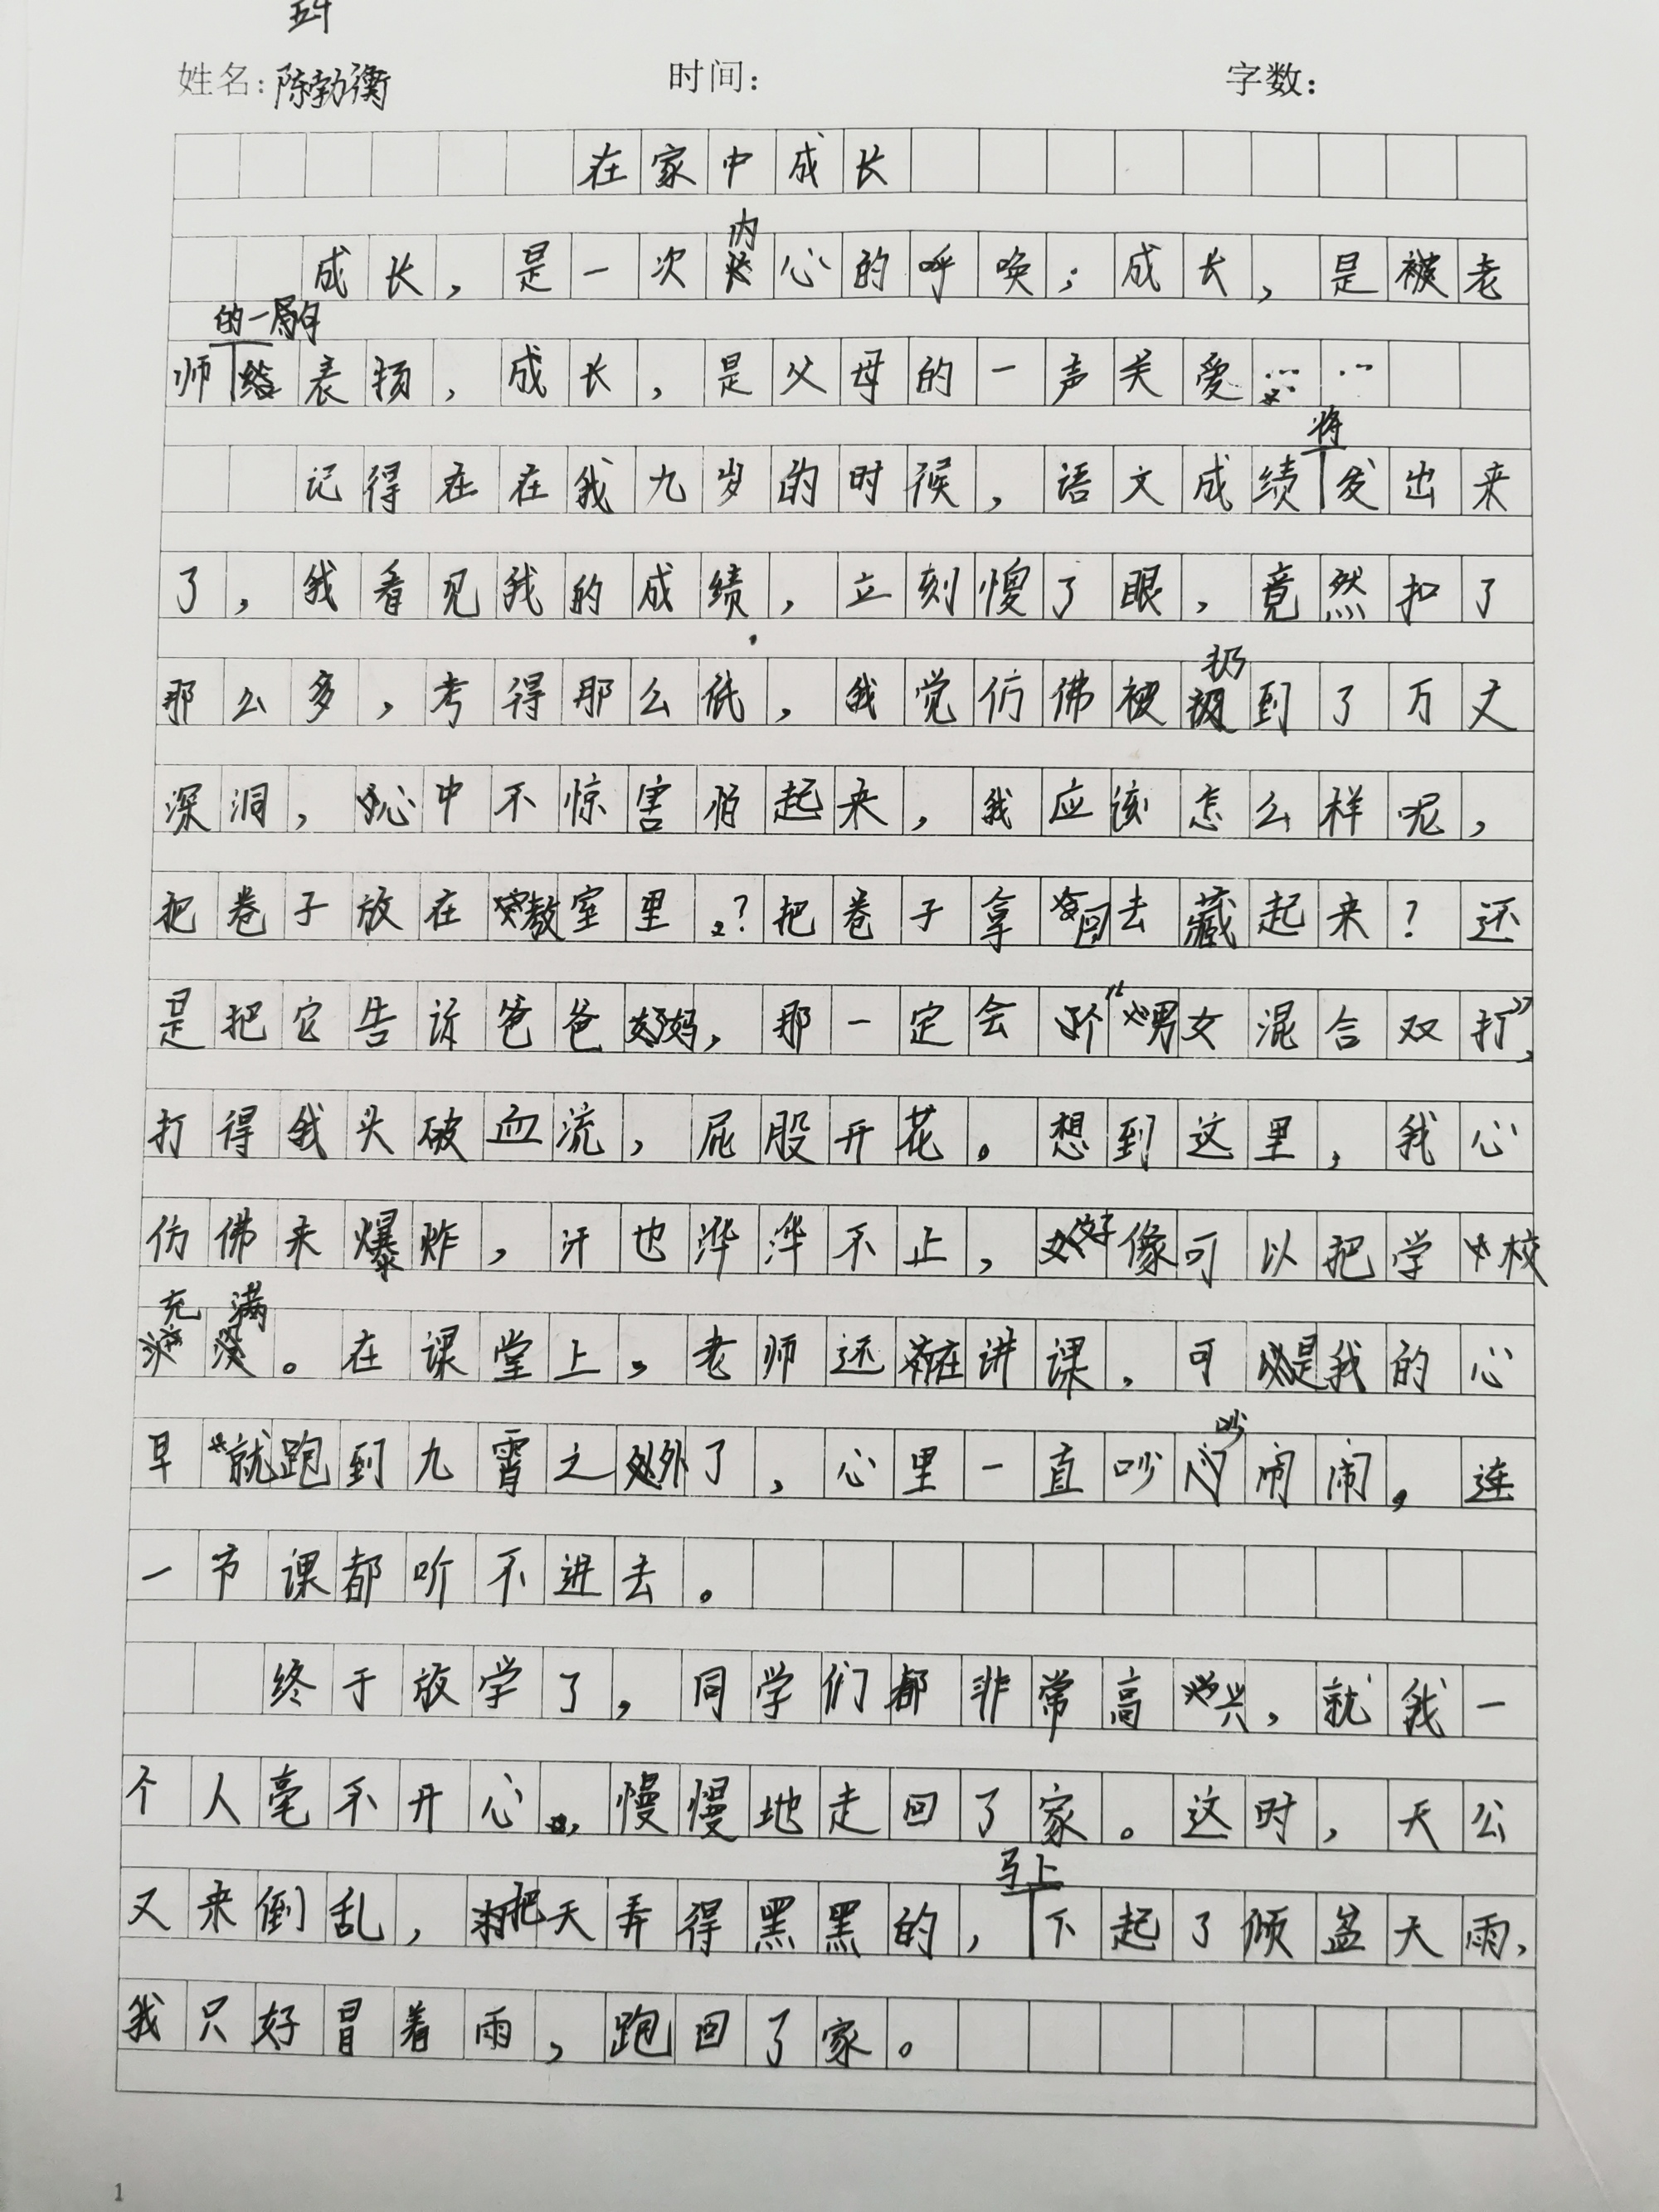 姓名：陈勃衡 时间： 字数：
在家中成长
成长，是一次内心的呼唤；成长，是被老
师的一句表扬，成长，是父母的一声关爱……
记得在在我九岁的时候，语文成绩将发出来
了，我看见我的成绩，立刻傻了眼，竟然扣了
那么多，考得那么低，我觉仿佛被扔到了万丈
深洞，心中不惊害怕起来，我应该怎么样呢，
把卷子放在教室里？把卷子拿回去藏起来？还
是把它告诉爸爸妈妈，那一定会“男女混合双打”，
打得我头破血流，屁股开花。想到这里，我心
仿佛来爆炸，汗也哗哗不止，好像可以把学校
充满。在课堂上，老师还在讲课，可是我的心
早就跑到九霄之外了，心里一直吵吵闹闹，连
一节课都听不进去。
终于放学了，同学们都非常高兴，就我一
个人毫不开心，慢慢地走回了家。这时，天公
又来倒乱，把天弄得黑黑的，马上下起了倾盆大雨，
我只好冒着雨，跑回了家。
1